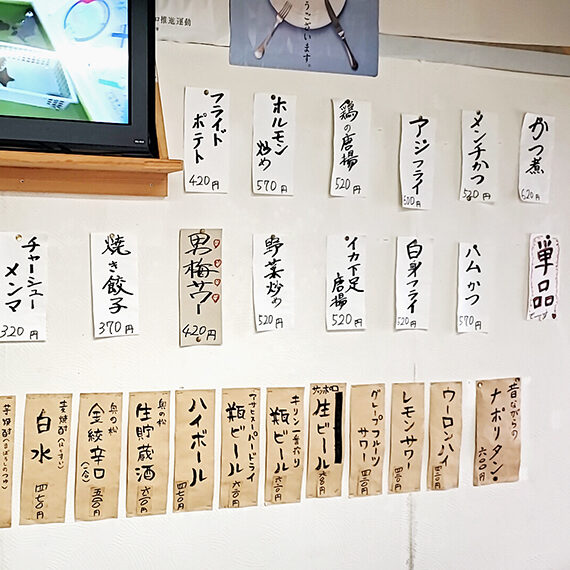 推進運動
うございます。
かつ煮
620円
メンチかつ
520円
アジフライ
500円
鶏の唐揚
520円
ホルモン
炒め
570円
フライド
ポテト
420円
単品
ハムかつ
570円
白身フライ
520円
イカ下足
唐揚
520円
野菜炒め
520円
男梅サワー
420円
焼き餃子
370円
チャーシュー
メンマ
320円
昔ながらの
ナポリタン
六〇〇円
ウーロンハイ
レモンサワー
グレープフルーツ
サワー
サッポロ
生ビール
キリン一番搾り
瓶ビール
アサヒスーパードライ
瓶ビール
ハイボール
四七〇円
奥の松
生貯蔵酒
奥の松
金紋辛口
麦焼酎
白水
四七〇円
芋焼酎